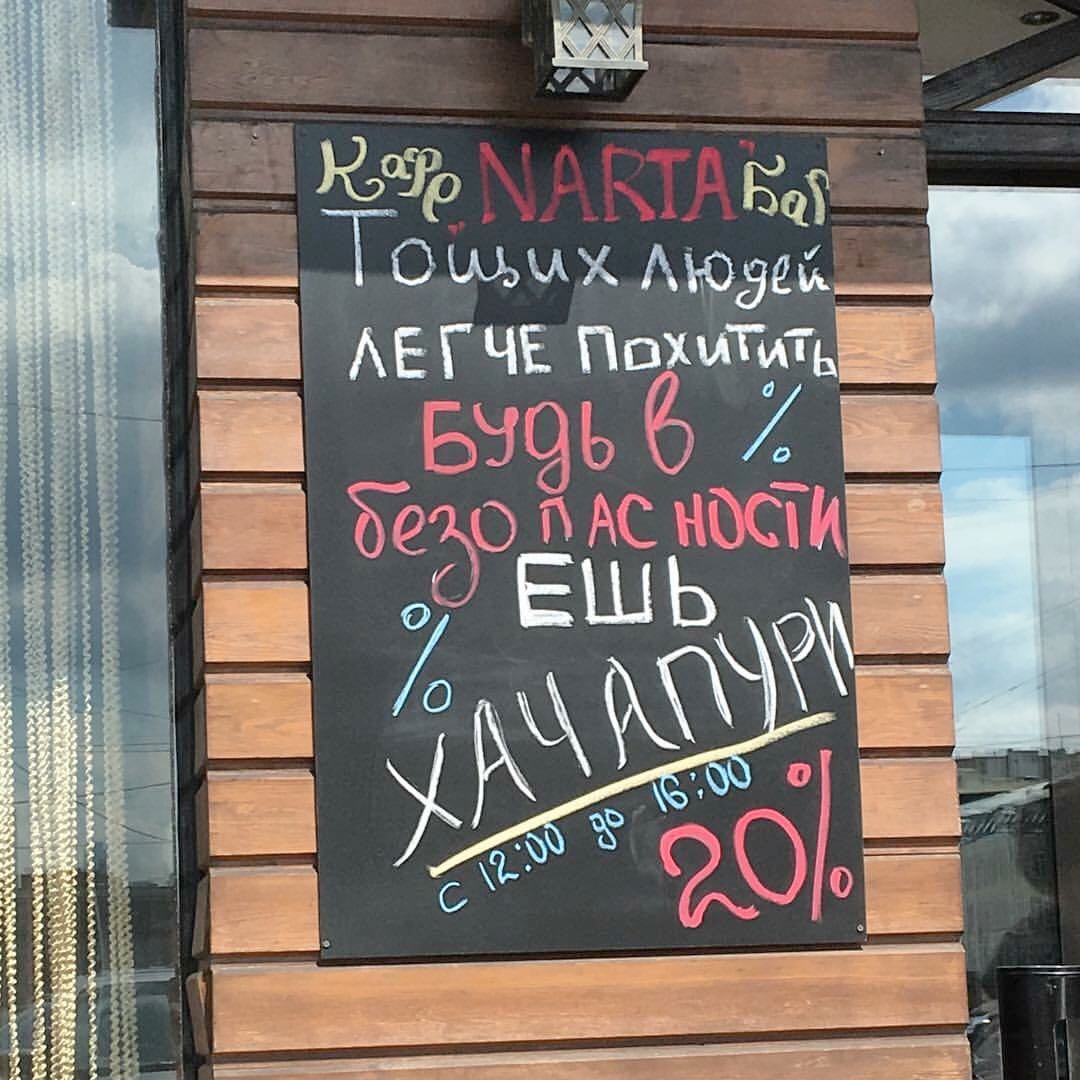 Кафе "NARTA" Бар
Тощих людей
ЛЕГЧЕ ПОХИТИТЬ
БУДЬ В %
безопАСНОСТИ
ЕШЬ
%
ХАЧАПУРИ
с 12:00 до 16:00
20%